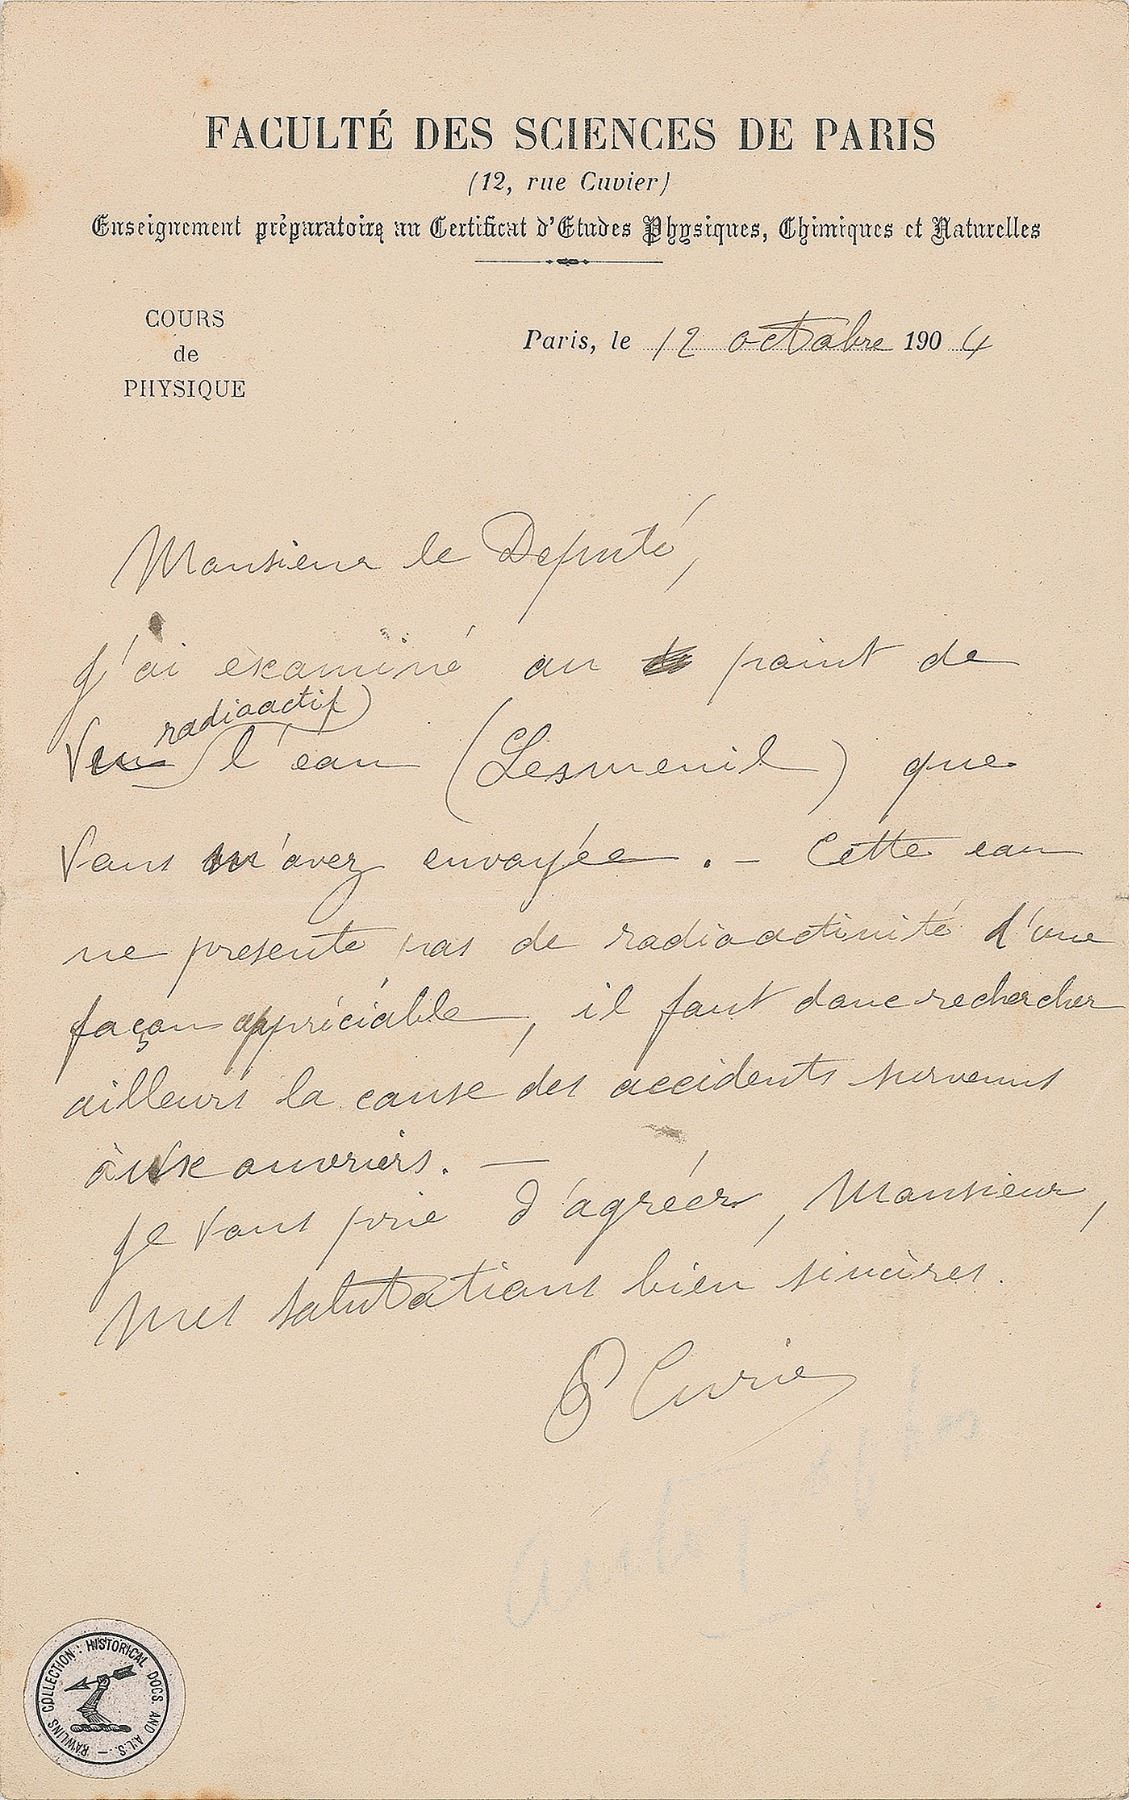 FACULTÉ DES SCIENCES DE PARIS
(12, rue Cuvier)
Enseignement préparatoire au Certificat d'Etudes Physiques, Chimiques et Naturelles
COURS
de
PHYSIQUE
Paris, le 12 octobre 1904
Monsieur le Deputé,
J'ai examiné au point de
radioactif
vue l'eau (Lesmenil) que
vous m'avez envoyée. — Cette eau
ne presente pas de radioactivité d'une
façon appréciable, il faut donc rechercher
ailleurs la cause des accidents survenus
aux ouvriers. —
Je vous prie d'agréer, Monsieur,
mes salutations bien sincères.
P Curie
RAWLINS COLLECTION: HISTORICAL DOCS. AND A.L.S. —